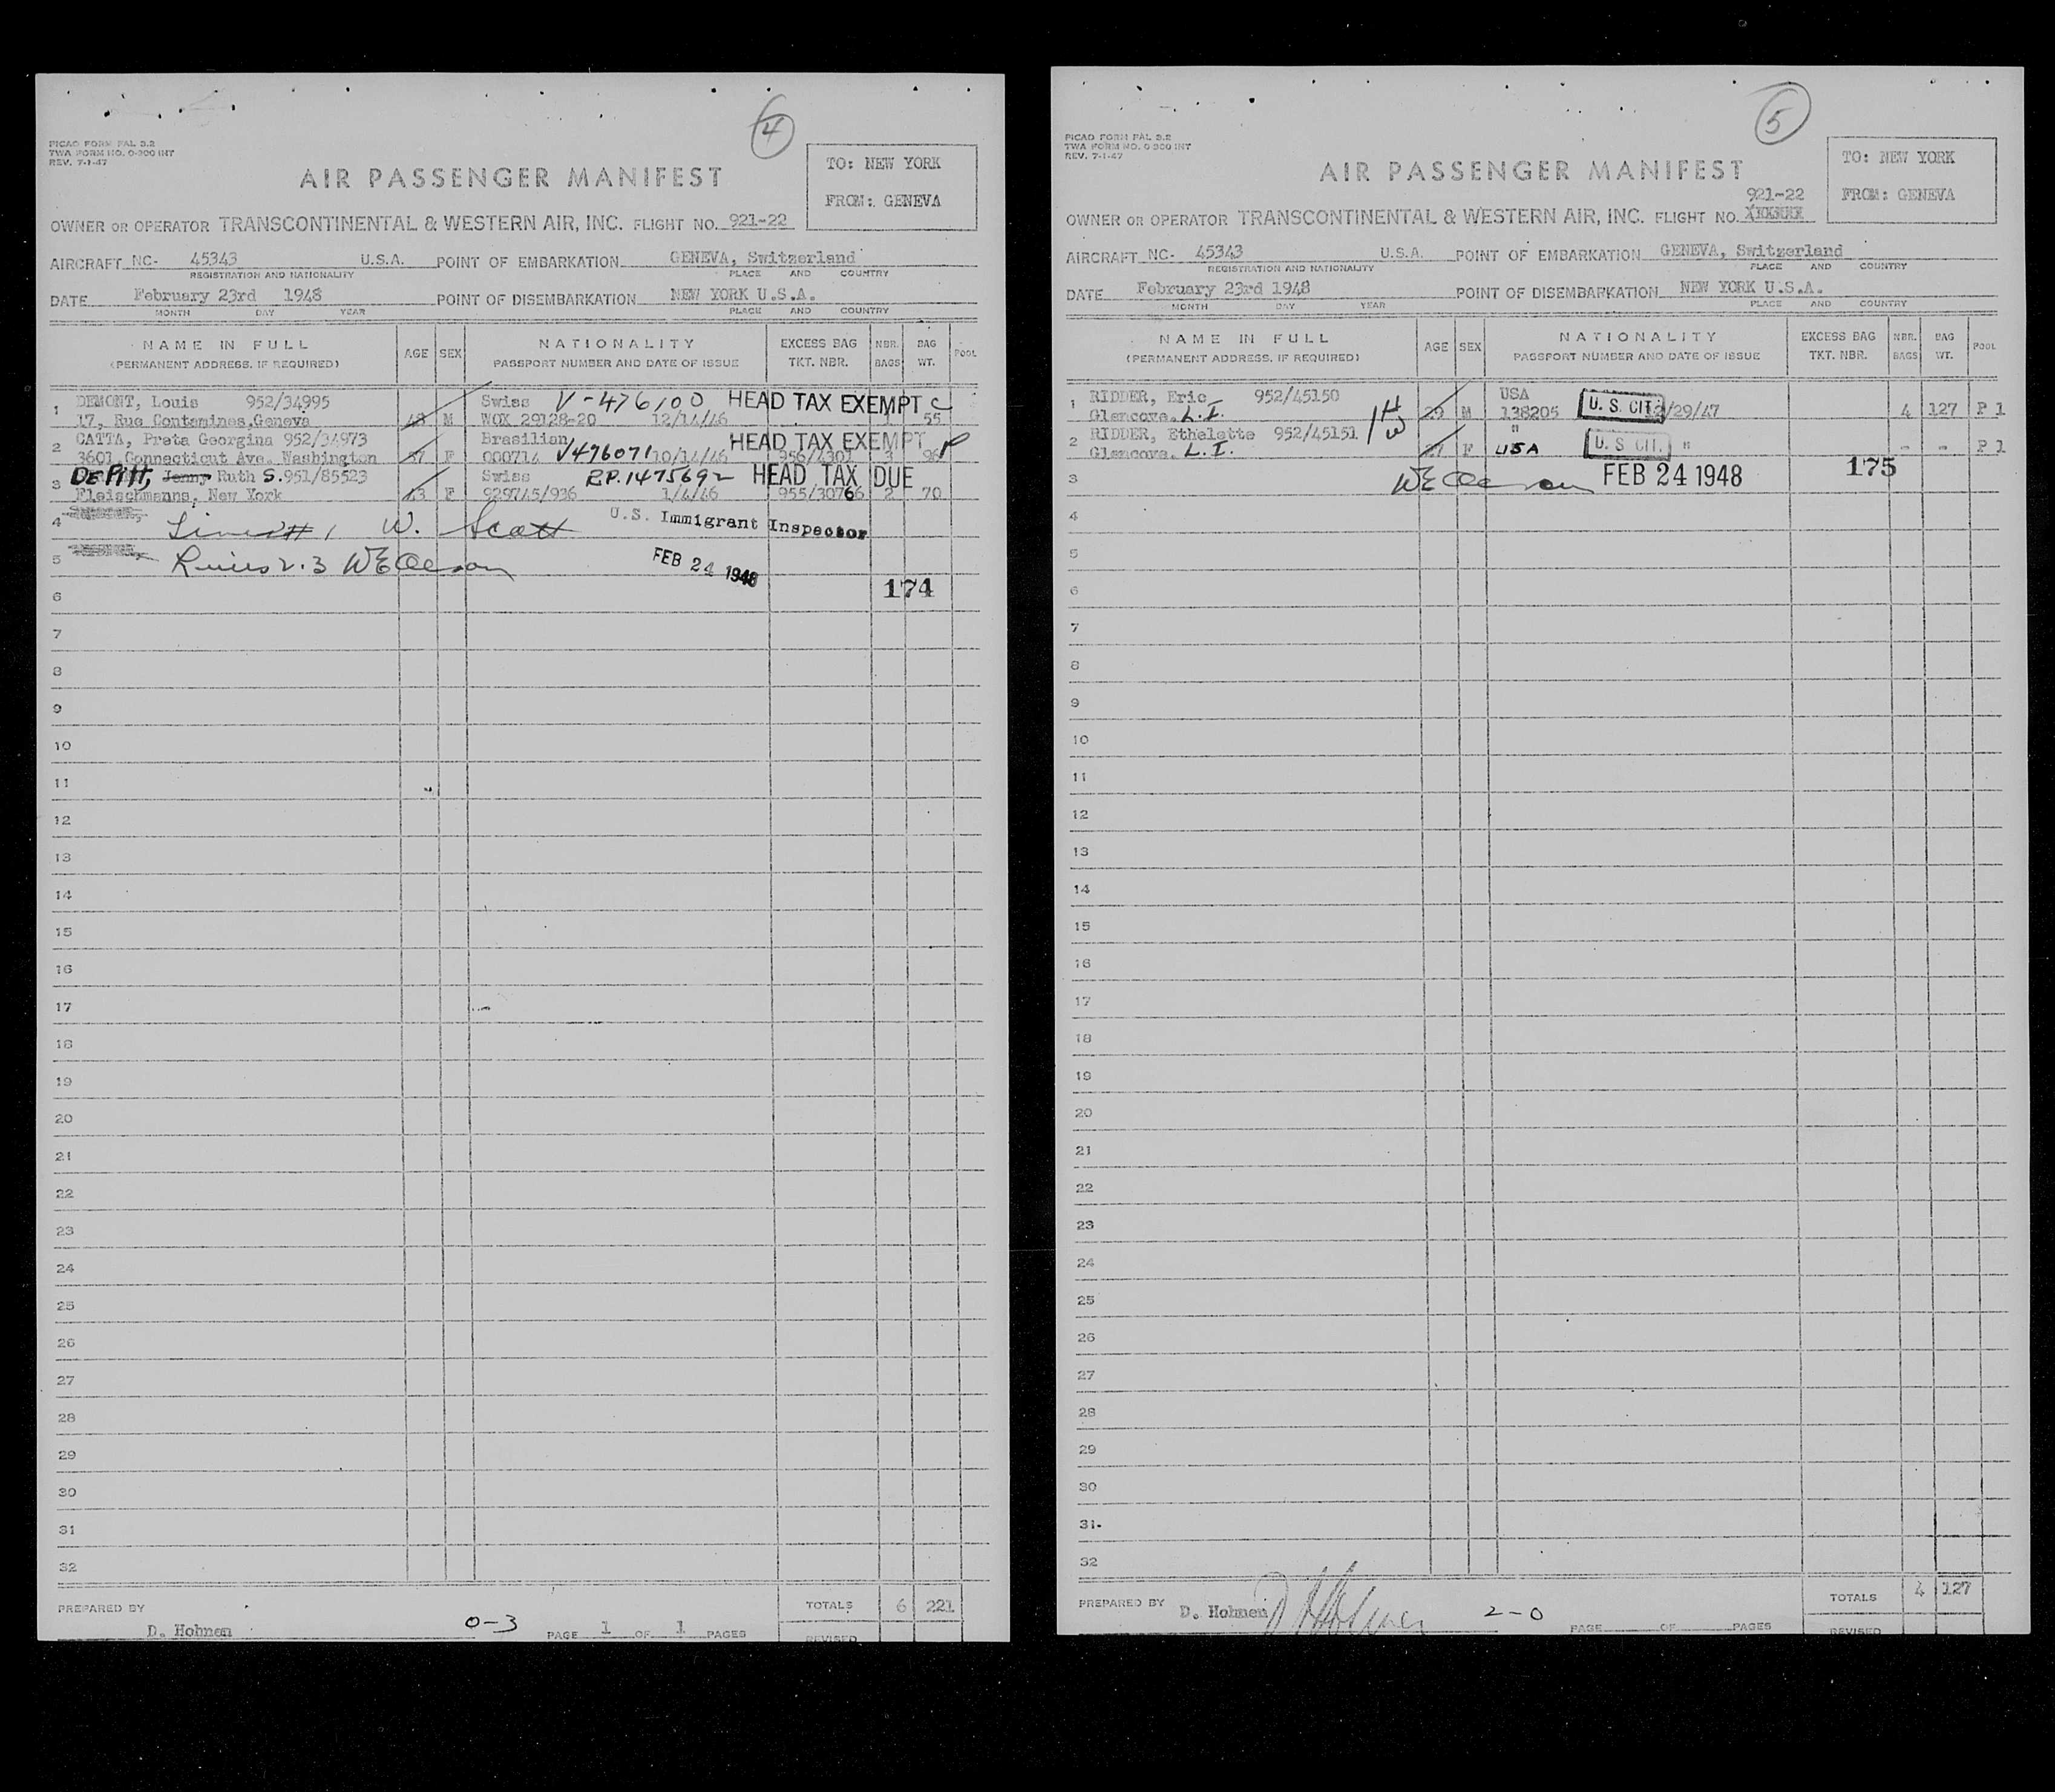 4
PICAO FORM PAL 3.2
TWA FORM NO. 0-300 INT
REV. 7-1-47
AIR PASSENGER MANIFEST
TO: NEW YORK
FROM: GENEVA
OWNER OR OPERATOR TRANSCONTINENTAL & WESTERN AIR, INC. FLIGHT NO. 921-22
AIRCRAFT NC- 45343 U.S.A. POINT OF EMBARKATION GENEVA, Switzerland
REGISTRATION AND NATIONALITY PLACE AND COUNTRY
DATE February 23rd 1948 POINT OF DISEMBARKATION NEW YORK U.S.A.
MONTH DAY YEAR PLACE AND COUNTRY
NAME IN FULL AGE SEX NATIONALITY EXCESS BAG NBR. BAG POOL
(PERMANENT ADDRESS, IF REQUIRED) PASSPORT NUMBER AND DATE OF ISSUE TKT. NBR. BAGS WT.
1 DEMONT, Louis 952/34995 Swiss V-476100 HEAD TAX EXEMPT C
17, Rue Contamines, Geneva 48 M WOX 29128-20 12/14/46 1 55
2 CATTA, Preta Georgina 952/34973 Brasilian V476071 HEAD TAX EXEMPT P
3601 Connecticut Ave. Washington 37 F 000714 10/14/46 956/4301 3 96
3 DEPitt, Jenny Ruth S. 951/85523 Swiss R.P. 1475692 HEAD TAX DUE
Fleischmanns, New York 43 F 929745/936 1/4/46 955/30766 2 70
4 Line # 1 W. Scott U.S. Immigrant Inspector
5 2.3 FEB 24 1948
6 174
7
8
9
10
11
12
13
14
15
16
17
18
19
20
21
22
23
24
25
26
27
28
29
30
31
32
TOTALS 6 221
PREPARED BY D. Hohnen 0-3 PAGE 1 OF 1 PAGES REVISED
5
PICAO FORM PAL 3.2
TWA FORM NO. 0-300 INT
REV. 7-1-47
AIR PASSENGER MANIFEST
TO: NEW YORK
FROM: GENEVA
921-22
OWNER OR OPERATOR TRANSCONTINENTAL & WESTERN AIR, INC. FLIGHT NO.
AIRCRAFT NC- 45343 U.S.A. POINT OF EMBARKATION GENEVA, Switzerland
REGISTRATION AND NATIONALITY PLACE AND COUNTRY
DATE February 23rd 1948 POINT OF DISEMBARKATION NEW YORK U.S.A.
MONTH DAY YEAR PLACE AND COUNTRY
NAME IN FULL AGE SEX NATIONALITY EXCESS BAG NBR. BAG POOL
(PERMANENT ADDRESS, IF REQUIRED) PASSPORT NUMBER AND DATE OF ISSUE TKT. NBR. BAGS WT.
1 RIDDER, Eric 952/45150 H USA U. S. CIT.
Glencove. L.I. 29 M 138205 12/29/47 4 127 P 1
2 RIDDER, Ethelette 952/45151 W " U. S CIT. "
Glencove. L.I. 27 F USA - - P 1
3 FEB 24 1948 175
4
5
6
7
8
9
10
11
12
13
14
15
16
17
18
19
20
21
22
23
24
25
26
27
28
29
30
31
32
TOTALS 4 127
PREPARED BY D. Hohnen 2-0 PAGE OF PAGES REVISED